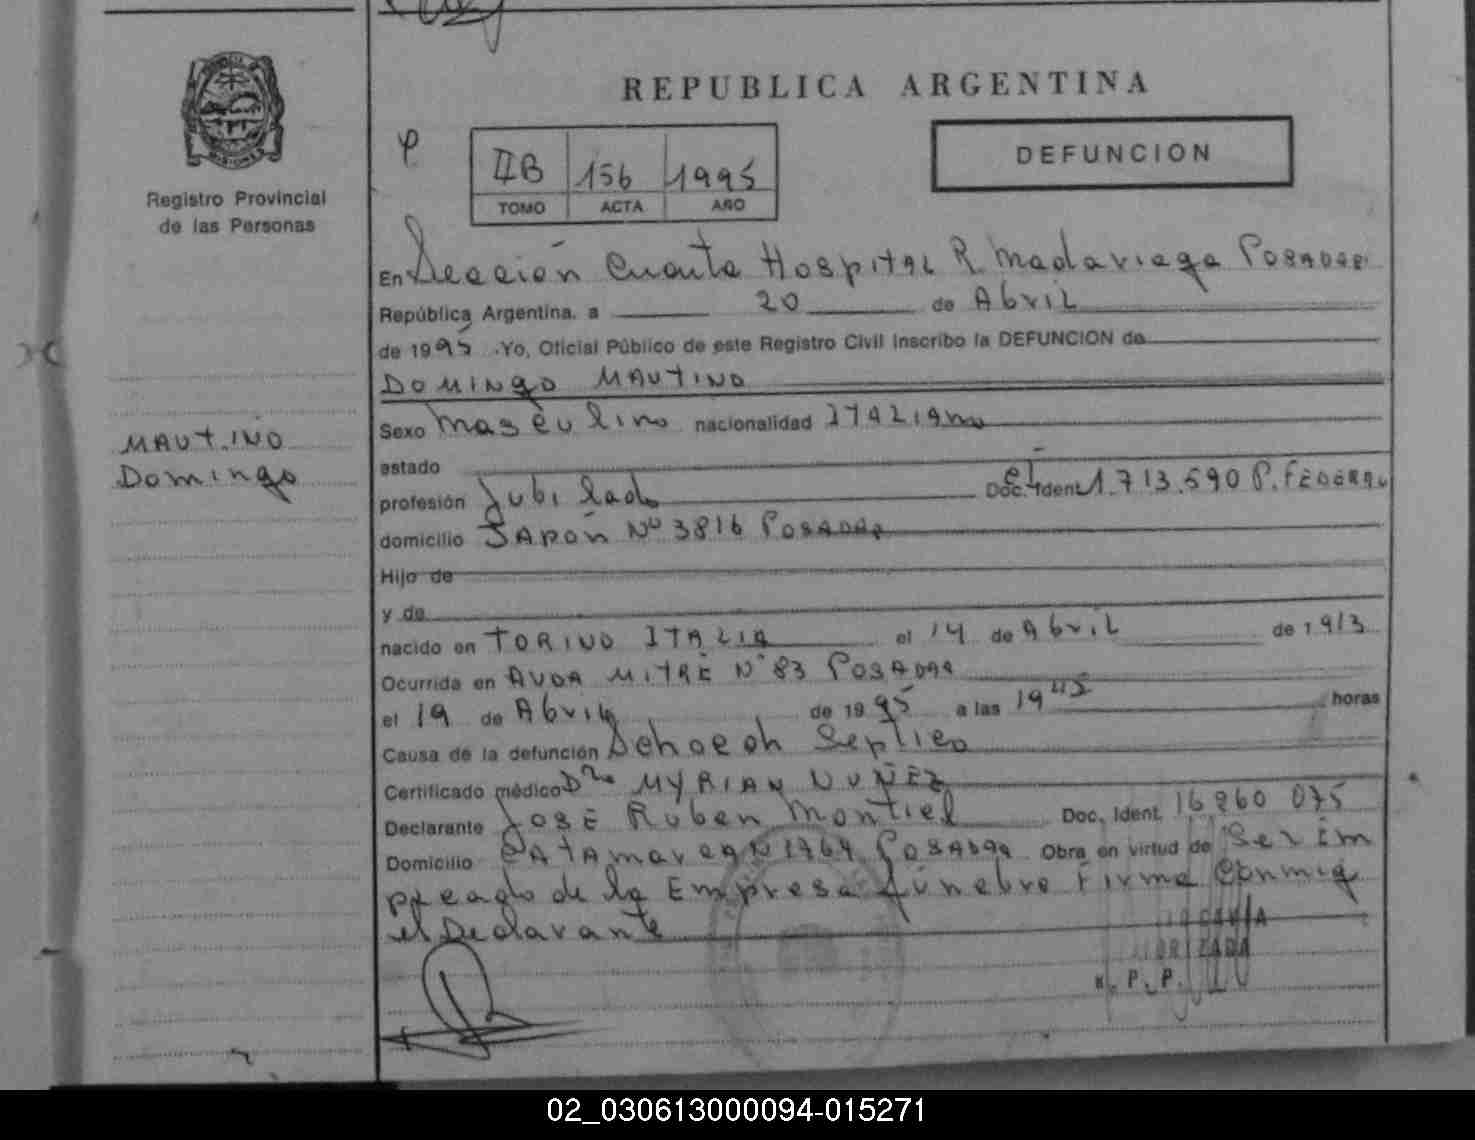 REPUBLICA ARGENTINA
DEFUNCION
IIB 156 1995
TOMO ACTA AÑO
MISIONES
Registro Provincial
de las Personas
MAUTINO
Domingo
En Sección Cuarta Hospital R. Madariaga Posadas
República Argentina, a 20 de Abril
de 1995 .Yo, Oficial Público de este Registro Civil inscribo la DEFUNCION de
DOMINGO MAUTINO
Sexo Masculino nacionalidad ITALIANO
estado
profesión Jubilado Doc. Ident. CI 1.713.590 P. FEDERAL
domicilio JAPÓN Nº 3816 POSADAS
Hijo de
y de
nacido en TORINO ITALIA el 14 de Abril de 1913
Ocurrida en AVDA MITRE Nº 83 POSADAS
el 19 de Abril de 1995 a las 19 45 horas
Causa de la defunción Schoch Septico
Certificado médico Dra MYRIAN NUÑEZ
Declarante JOSÉ Ruben Montiel Doc. Ident. 16 260 075
Domicilio CATAMARCA Nº 1764 POSADAS Obra en virtud de Ser Em
pleado de la Empresa fúnebre Firma Conmig
el Declarante
R. P. P.
02_030613000094-015271